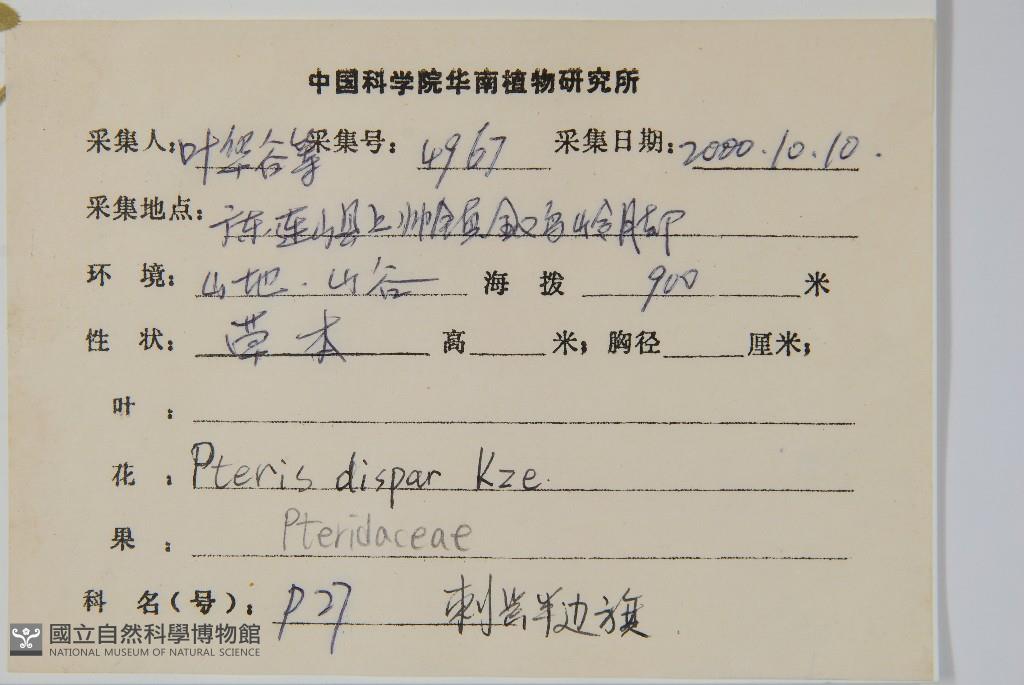 中国科学院华南植物研究所
采集人: 叶华谷等 采集号: 4967 采集日期: 2000.10.10.
采集地点: 广东.连山县上帅镇金鸡岭
环 境: 山地.山谷 海 拨 900 米
性 状: 草本 高 米; 胸径 厘米;
叶 :
花 : Pteris dispar Kze.
果 : Pteridaceae
科 名(号): P27 刺齿半边旗
國立自然科學博物館
NATIONAL MUSEUM OF NATURAL SCIENCE